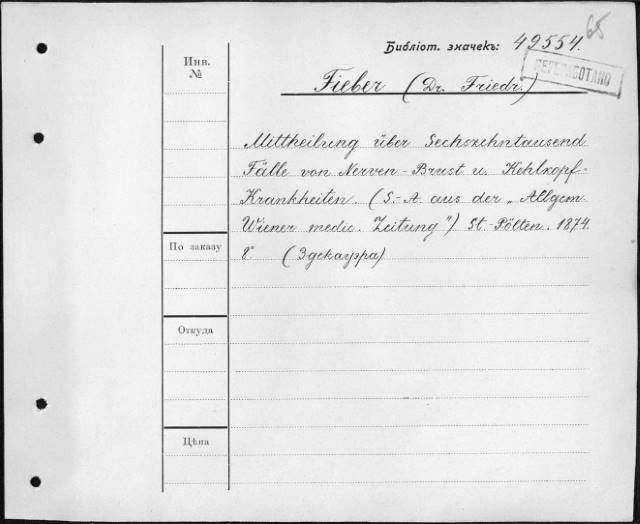 65
Библіот. значекъ: 49554.
ПЕРЕРАБОТАНО
Инв.
№
Fieber (Dr. Friedr.)
Mittheilung über Sechszehntausend
Fälle von Nerven-Brust u. Kehlkopf-
Krankheiten. (S.-A. aus der „Allgem.
Wiener medic. Zeitung") St.-Pölten. 1874.
8° (Эдекауэра)
По заказу
Откуда
Цѣна